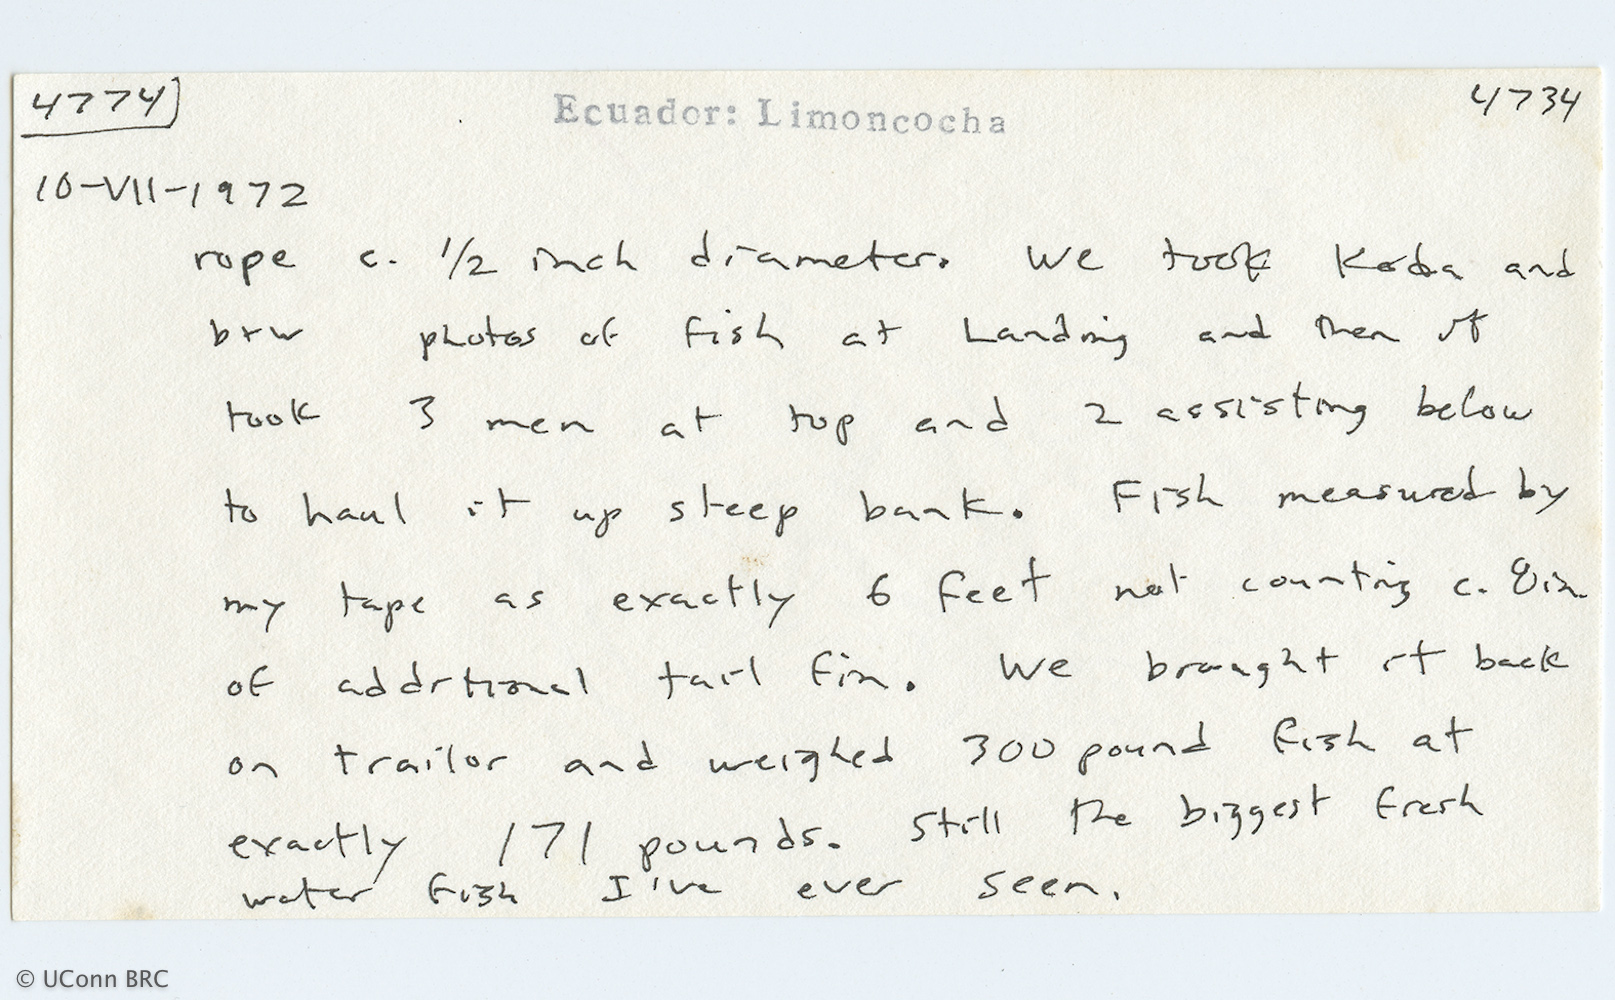 4774
Ecuador: Limoncocha
4734
10-VII-1972
rope c. 1/2 inch diameter. We took Koda and
b+w photos of fish at Landing and then it
took 3 men at top and 2 assisting below
to haul it up steep bank. Fish measured by
my tape as exactly 6 feet not counting c. 8in.
of additional tail fin. We brought it back
on trailor and weighed 300 pound fish at
exactly 171 pounds. Still the biggest fresh
water fish I've ever seen.
© UConn BRC